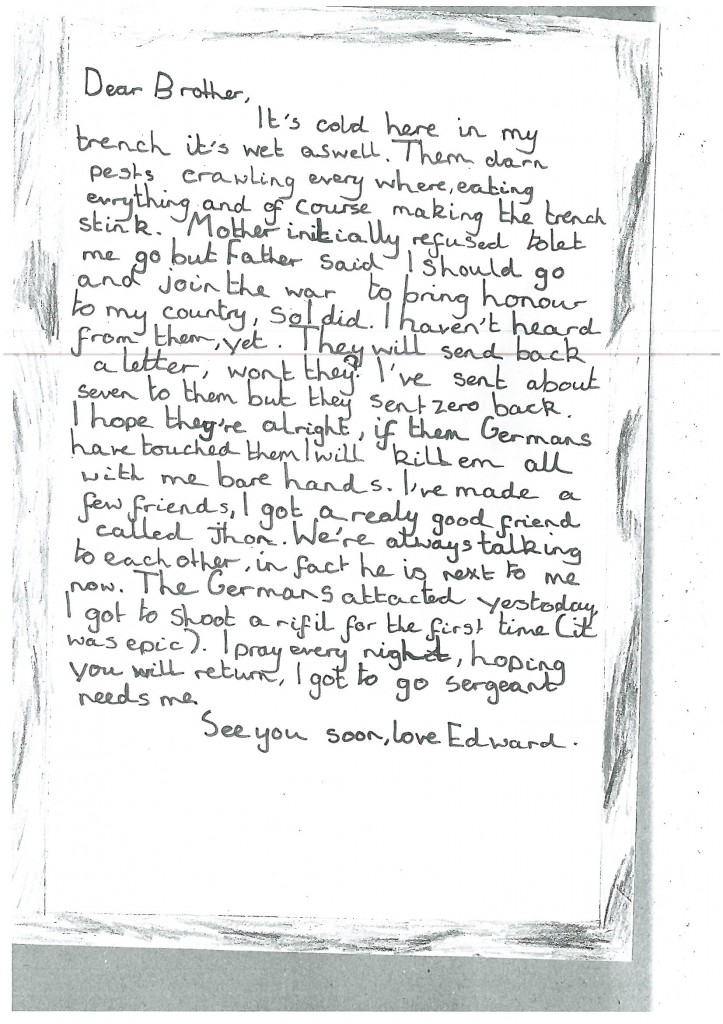 Dear Brother,
It's cold here in my
trench it's wet aswell. Them darn
pests crawling every where, eating
evrything and of course making the trench
stink. Mother initially refused to let
me go but Father said I should go
and join the war to bring honour
to my country, so I did. I haven't heard
from them, yet. They will send back
a letter, wont they? I've sent about
seven to them but they sent zero back.
I hope they're alright, if them Germans
have touched them I will kill em all
with me bare hands. I've made a
few friends, I got a realy good friend
called Jhon. We're always talking
to each other, in fact he is next to me
now. The Germans attacted yestoday,
I got to shoot a rifil for the first time (it
was epic). I pray every night, hoping
you will return, I got to go sergeant
needs me.
See you soon, love Edward.